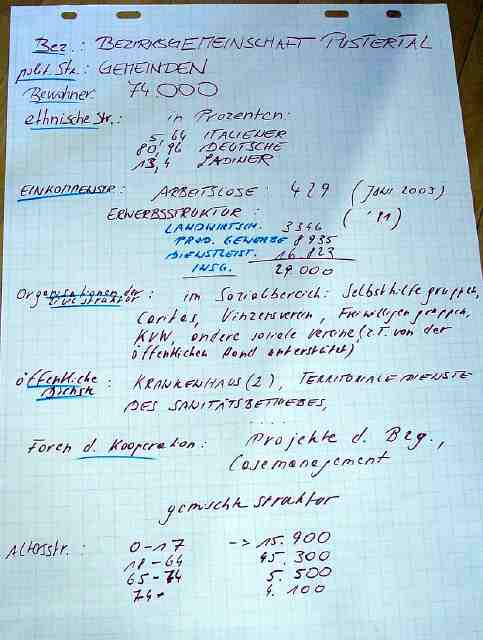 Bez.: BEZIRKSGEMEINSCHAFT PUSTERTAL
polit. Str.: GEMEINDEN
Bewohner: 74.000
ethnische Str.: in Prozenten:
5,64 ITALIENER
80,96 DEUTSCHE
13,4 LADINER
EINKOMMENSTR: ARBEITSLOSE: 429 (JUNI 2003)
ERWERBSSTRUKTUR: ('91)
LANDWIRTSCH. 3346
PROD. GEWERBE 8935
DIENSTLEIST. 16.823
INSG. 29.000
Organisationen der Zivilstruktur: im Sozialbereich: Selbsthilfegruppen,
Caritas, Vinzensverein, Freiwilligengruppen,
KVW, andere soziale Vereine (z.T. von der
öffentlichen Hand unterstützt)
öffentliche Dienste: KRANKENHAUS (2), TERRITORIALE DIENSTE
DES SANITÄTSBETRIEBES,
.....
Foren d. Kooperation: Projekte d. Bzg.,
Casemanagement
gemischte Struktur
Altersstr.: 0-17 -> 15.900
18-64 45.300
65-74 5.500
74- 4.100